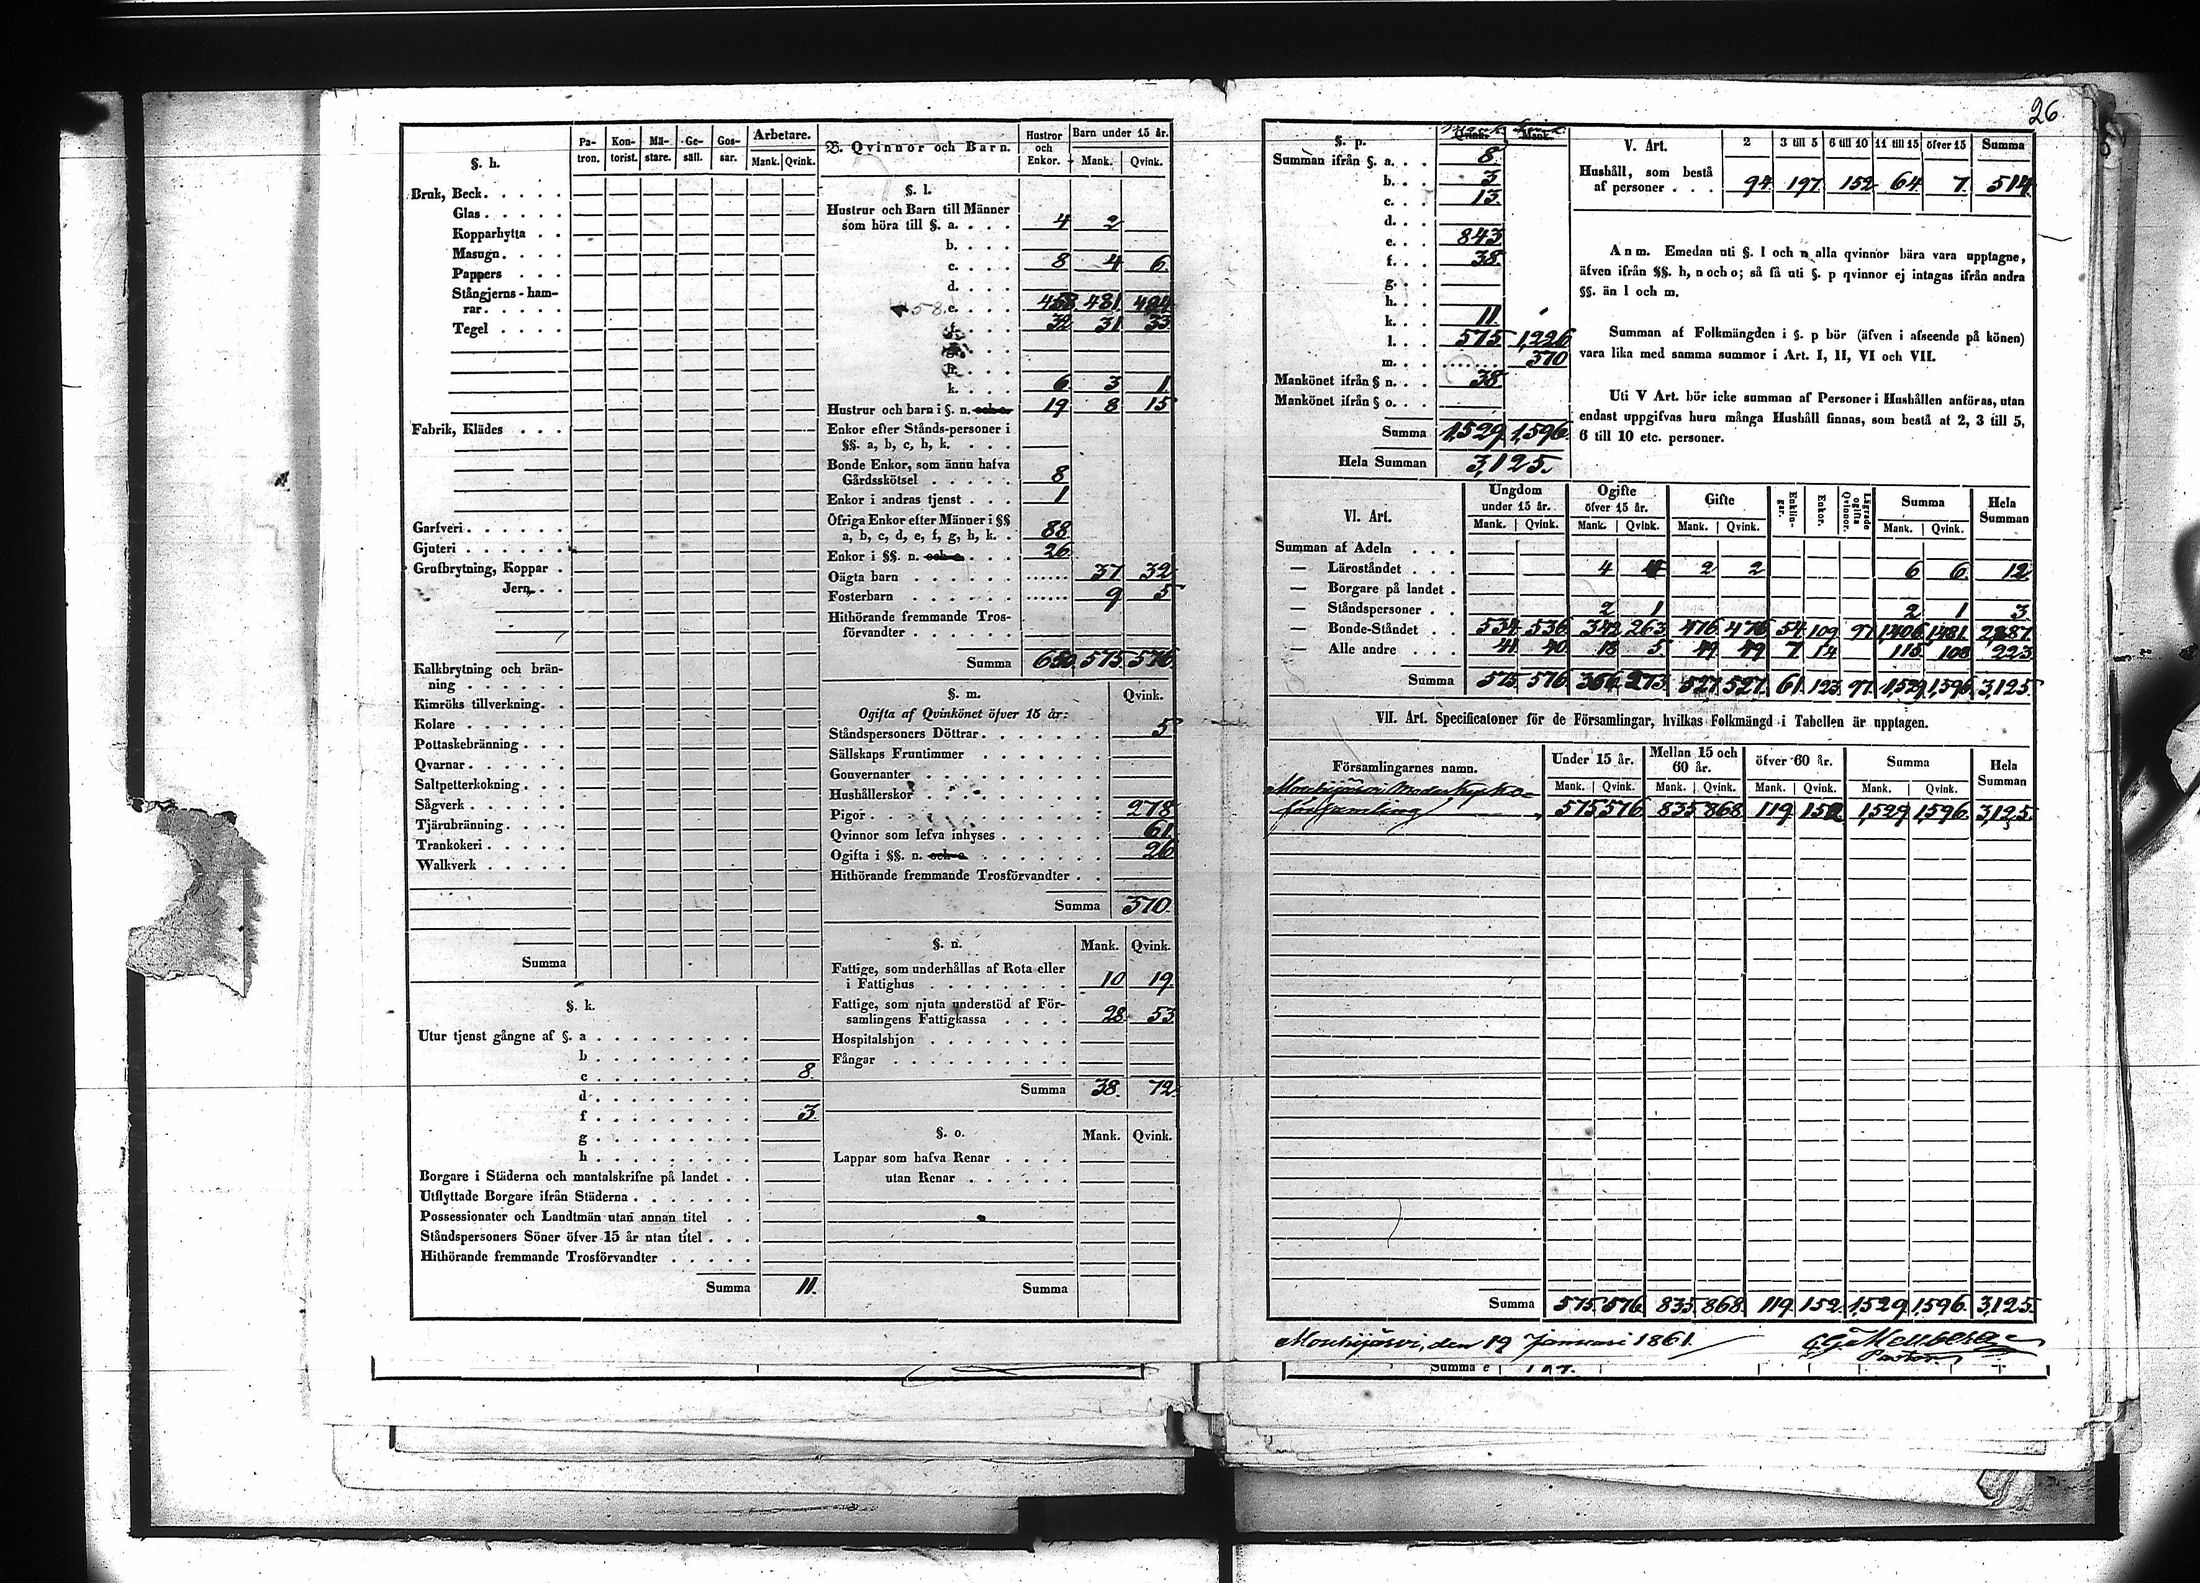 26.
§. h. Pa-tron. Kon-torist. Mä-stare. Ge-säll. Gos-sar. Arbetare. Mank. Qvink.
Bruk, Beck. . . . .
Glas . . . . .
Kopparhytta . .
Masugn. . . . .
Pappers . . .
Stångjerns-ham-
rar. . . . .
Tegel . . . .
Fabrik, Klädes . . .
Garfveri. . . . . .
Gjuteri . . . . . .
Grufbrytning, Koppar .
Jern. . .
Kalkbrytning och brän-
ning . . . . . .
Kimröks tillverkning. .
Kolare . . . . . .
Pottaskebränning . . .
Qvarnar. . . . . .
Saltpetterkokning. . .
Sågverk . . . . . .
Tjärubränning. . . .
Trankokeri . . . . .
Walkverk . . . . .
Summa
§. k.
Utur tjenst gångne af §. a . . . . . . . . .
b . . . . . . . . .
c . . . . . . . . . 8.
d . . . . . . . . .
f . . . . . . . . . 3.
g . . . . . . . . .
h . . . . . . . . .
Borgare i Städerna och mantalskrifne på landet . .
Utflyttade Borgare ifrån Städerna . . . . . .
Possessionater och Landtmän utan annan titel . .
Ståndspersoners Söner öfver 15 år utan titel . . .
Hithörande fremmande Trosförvandter . . . . .
Summa 11.
B. Qvinnor och Barn. Hustror och Enkor. Barn under 15 år. Mank. Qvink.
§. l.
Hustrur och Barn till Männer
som höra till §. a. . . . 4 2
b. . . . .
c. . . . . 8 4 6.
d. . . . .
458. e. . . . . 458 481 494
f. . . . . 32 31 33
g. . . . .
h. . . . .
k. . . . . 6 3 1.
Hustrur och barn i §. n. och o. 19 8 15
Enkor efter Stånds-personer i
§§. a, b, c, h, k. . . .
Bonde Enkor, som ännu hafva
Gårdsskötsel . . . . . 8.
Enkor i andras tjenst . . . 1
Öfriga Enkor efter Männer i §§
a, b, c, d, e, f, g, h, k. . 88.
Enkor i §§. n. och o. . . . 26.
Oägta barn . . . . . . ....... 37 32.
Fosterbarn . . . . . . ....... 9 5
Hithörande fremmande Tros-
förvandter . . . . . .
Summa 650 575 576.
§. m. Qvink.
Ogifta af Qvinkönet öfver 15 år:
Ståndspersoners Döttrar. . . . . . . 5
Sällskaps Fruntimmer . . . . . . .
Gouvernanter . . . . . . . . . .
Hushållerskor . . . . . . . . . .
Pigor . . . . . . . . . . . . 278.
Qvinnor som lefva inhyses . . . . . . 61.
Ogifta i §§. n. och o. . . . . . . . 26
Hithörande fremmande Trosförvandter . .
Summa 370.
§. n. Mank. Qvink.
Fattige, som underhållas af Rota eller
i Fattighus . . . . . . . . 10 19.
Fattige, som njuta understöd af För-
samlingens Fattigkassa . . . . 28. 53
Hospitalshjon . . . . . . . .
Fångar . . . . . . . . . .
Summa 38. 72.
§. o. Mank. Qvink.
Lappar som hafva Renar . . . .
utan Renar . . . . . .
Summa
§. p. Qvink. Mank.
Summan ifrån §. a. . . 8.
b. . . 3
c. . . 13.
d. . .
e. . . 843
f. . . 38.
g. . .
h. . .
k. . . 11.
l. . . 575 1,226
m. . . ....... 370
Mankönet ifrån § n. . . 38
Mankönet ifrån § o. . .
Summa 1,529. 1,596.
Hela Summan 3,125.
V. Art. 2 3 till 5 6 till 10 11 till 15 öfver 15 Summa
Hushåll, som bestå
af personer . . . 94. 197. 152 64. 7. 514.
Anm. Emedan uti §. l och n alla qvinnor bära vara upptagne,
äfven ifrån §§. h, n och o; så få uti §. p qvinnor ej intagas ifrån andra
§§. än l och m.
Summan af Folkmängden i §. p bör (äfven i afseende på könen)
vara lika med samma summor i Art. I, II, VI och VII.
Uti V Art. bör icke summan af Personer i Hushållen anföras, utan
endast uppgifvas huru många Hushåll finnas, som bestå af 2, 3 till 5,
6 till 10 etc. personer.
VI. Art. Ungdom under 15 år. Mank. Qvink. Ogifte öfver 15 år. Mank. Qvink. Gifte Mank. Qvink. Enklin-gar. Enkor. Lägrade ogifta Qvinnor. Summa Mank. Qvink. Hela Summan
Summan af Adeln . . .
— Läroståndet . . . 4 4 2 2 6 6. 12.
— Borgare på landet .
— Ståndspersoner . . 2 1 2 1 3.
— Bonde-Ståndet . . 534 536. 342 263. 476. 476 54 109 97 1,406. 1,481. 2,887.
— Alle andre . . . 41 40 18 5 49 49 7 14 115 108 223
Summa 575 576. 366. 273. 527. 527. 61. 123. 97. 1,529. 1,596. 3,125.
VII. Art. Specificatoner för de Församlingar, hvilkas Folkmängd i Tabellen är upptagen.
Församlingarnes namn. Under 15 år. Mank. Qvink. Mellan 15 och 60 år. Mank. Qvink. öfver 60 år. Mank. Qvink. Summa Mank. Qvink. Hela Summan
Mouhijärvi Moderkyrko-
församling 575 576 835 868 119 152 1,529 1,596. 3,125.
Summa 575. 576. 835. 868. 119. 152. 1,529. 1,596. 3,125.
Mouhijärvi, den 19 Januari 1861.
Pastor
Summa e